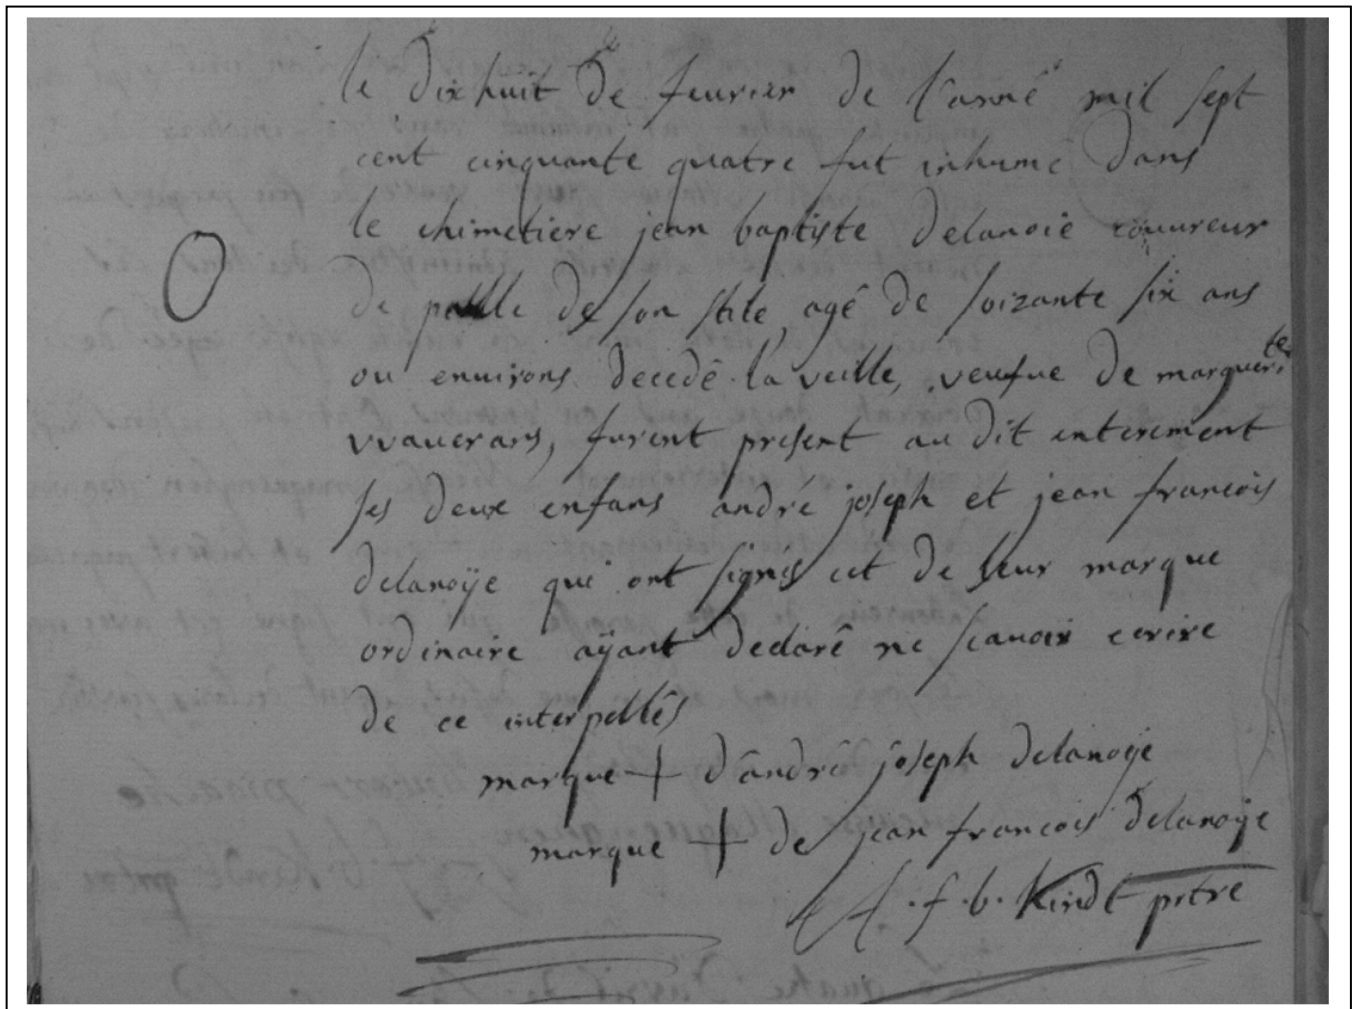 le dixhuit de feurier de l'anné mil sept
cent cinquante quatre fut inhumé dans
le chimetiere jean baptiste delanoië couureur
de palle de son stile, agé de soizante six ans
ou enuirons decedé la veille, veufue de marguerite
vvauerans, furent present au dit enterement
ses deux enfans andré joseph et jean francois
delanoÿe qui ont signés cet de leur marque
ordinaire aÿant declaré ne scauoir ecrire
de ce interpellés
marque + d'andré joseph delanoÿe
marque + de jean francois delanoÿe
f. b. Kindt prtre